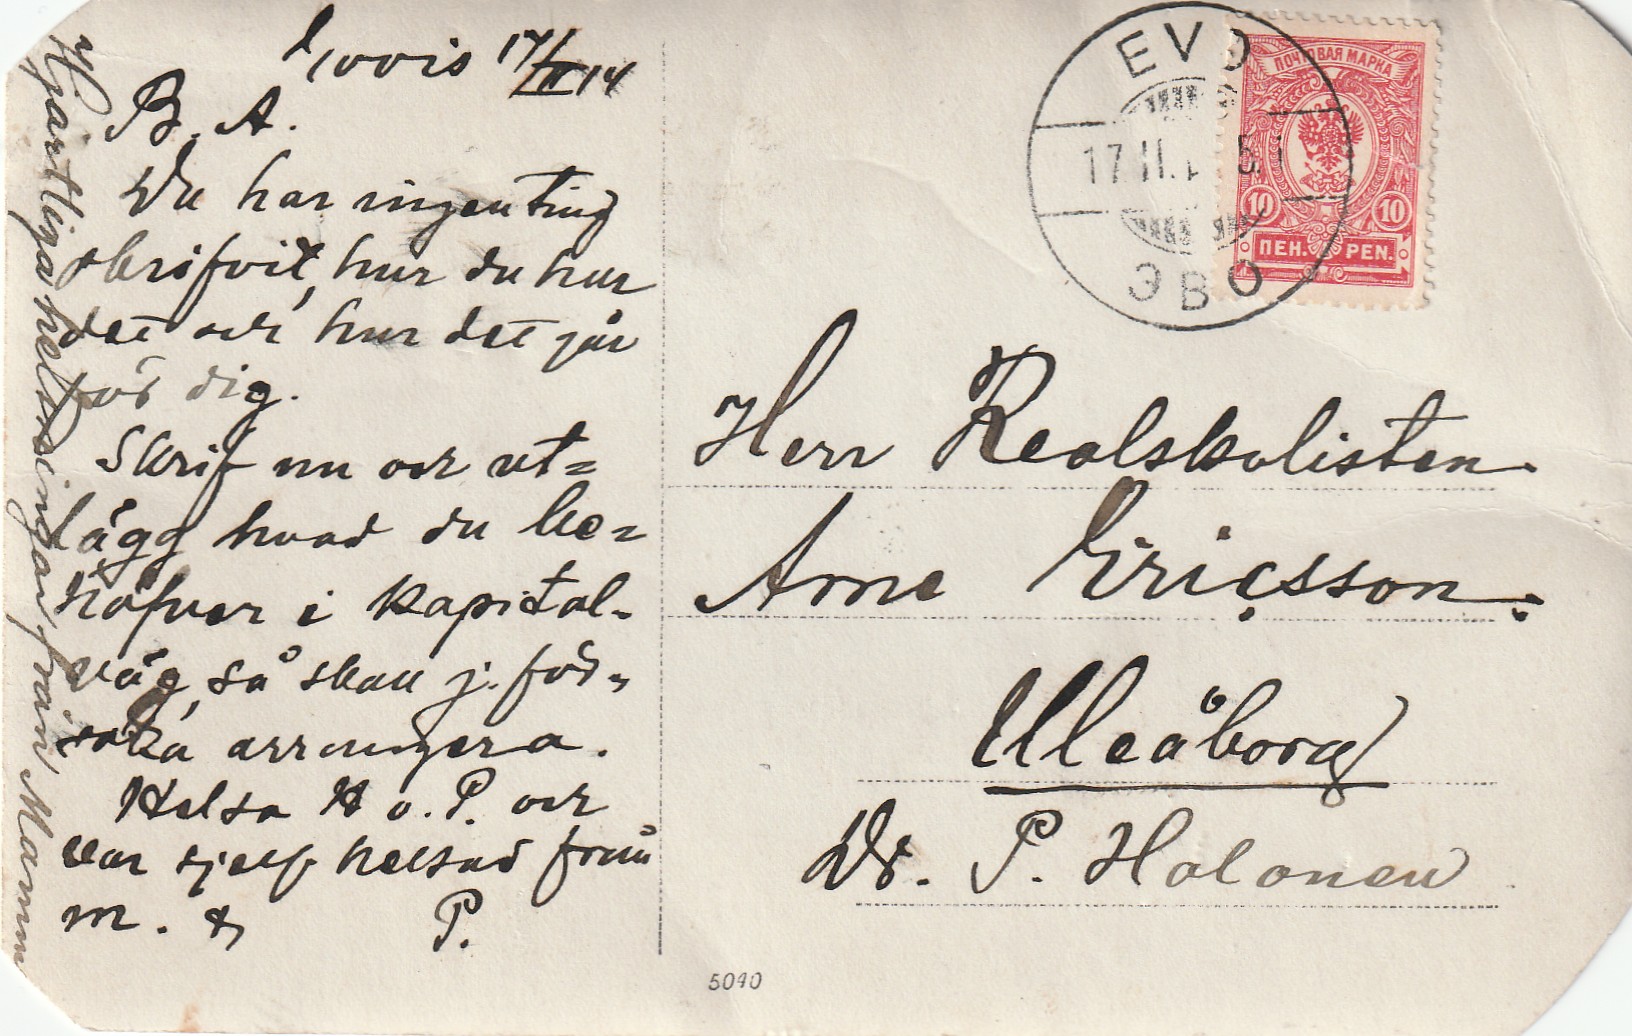 Evois 17/II 14
B. A.
Du har ingenting
skrifvit, hur du har
det och hur det går
för dig.
Skrif nu och ut=
lägg hvad du be=
höfver i kapital-
väg, så skall j. för-
söka arrangera.
Helsa H o. P. och
var sjelf helsad från
m. & P.
Hjärtliga helsningar från Mamma
EVO
17.II.1
ЭВО
ПОЧТОВАЯ МАРКА
10 10
ПЕН. PEN.
Herr Realskolisten
Arne Ericsson.
Uleåborg
Dr. P. Halonen
5090